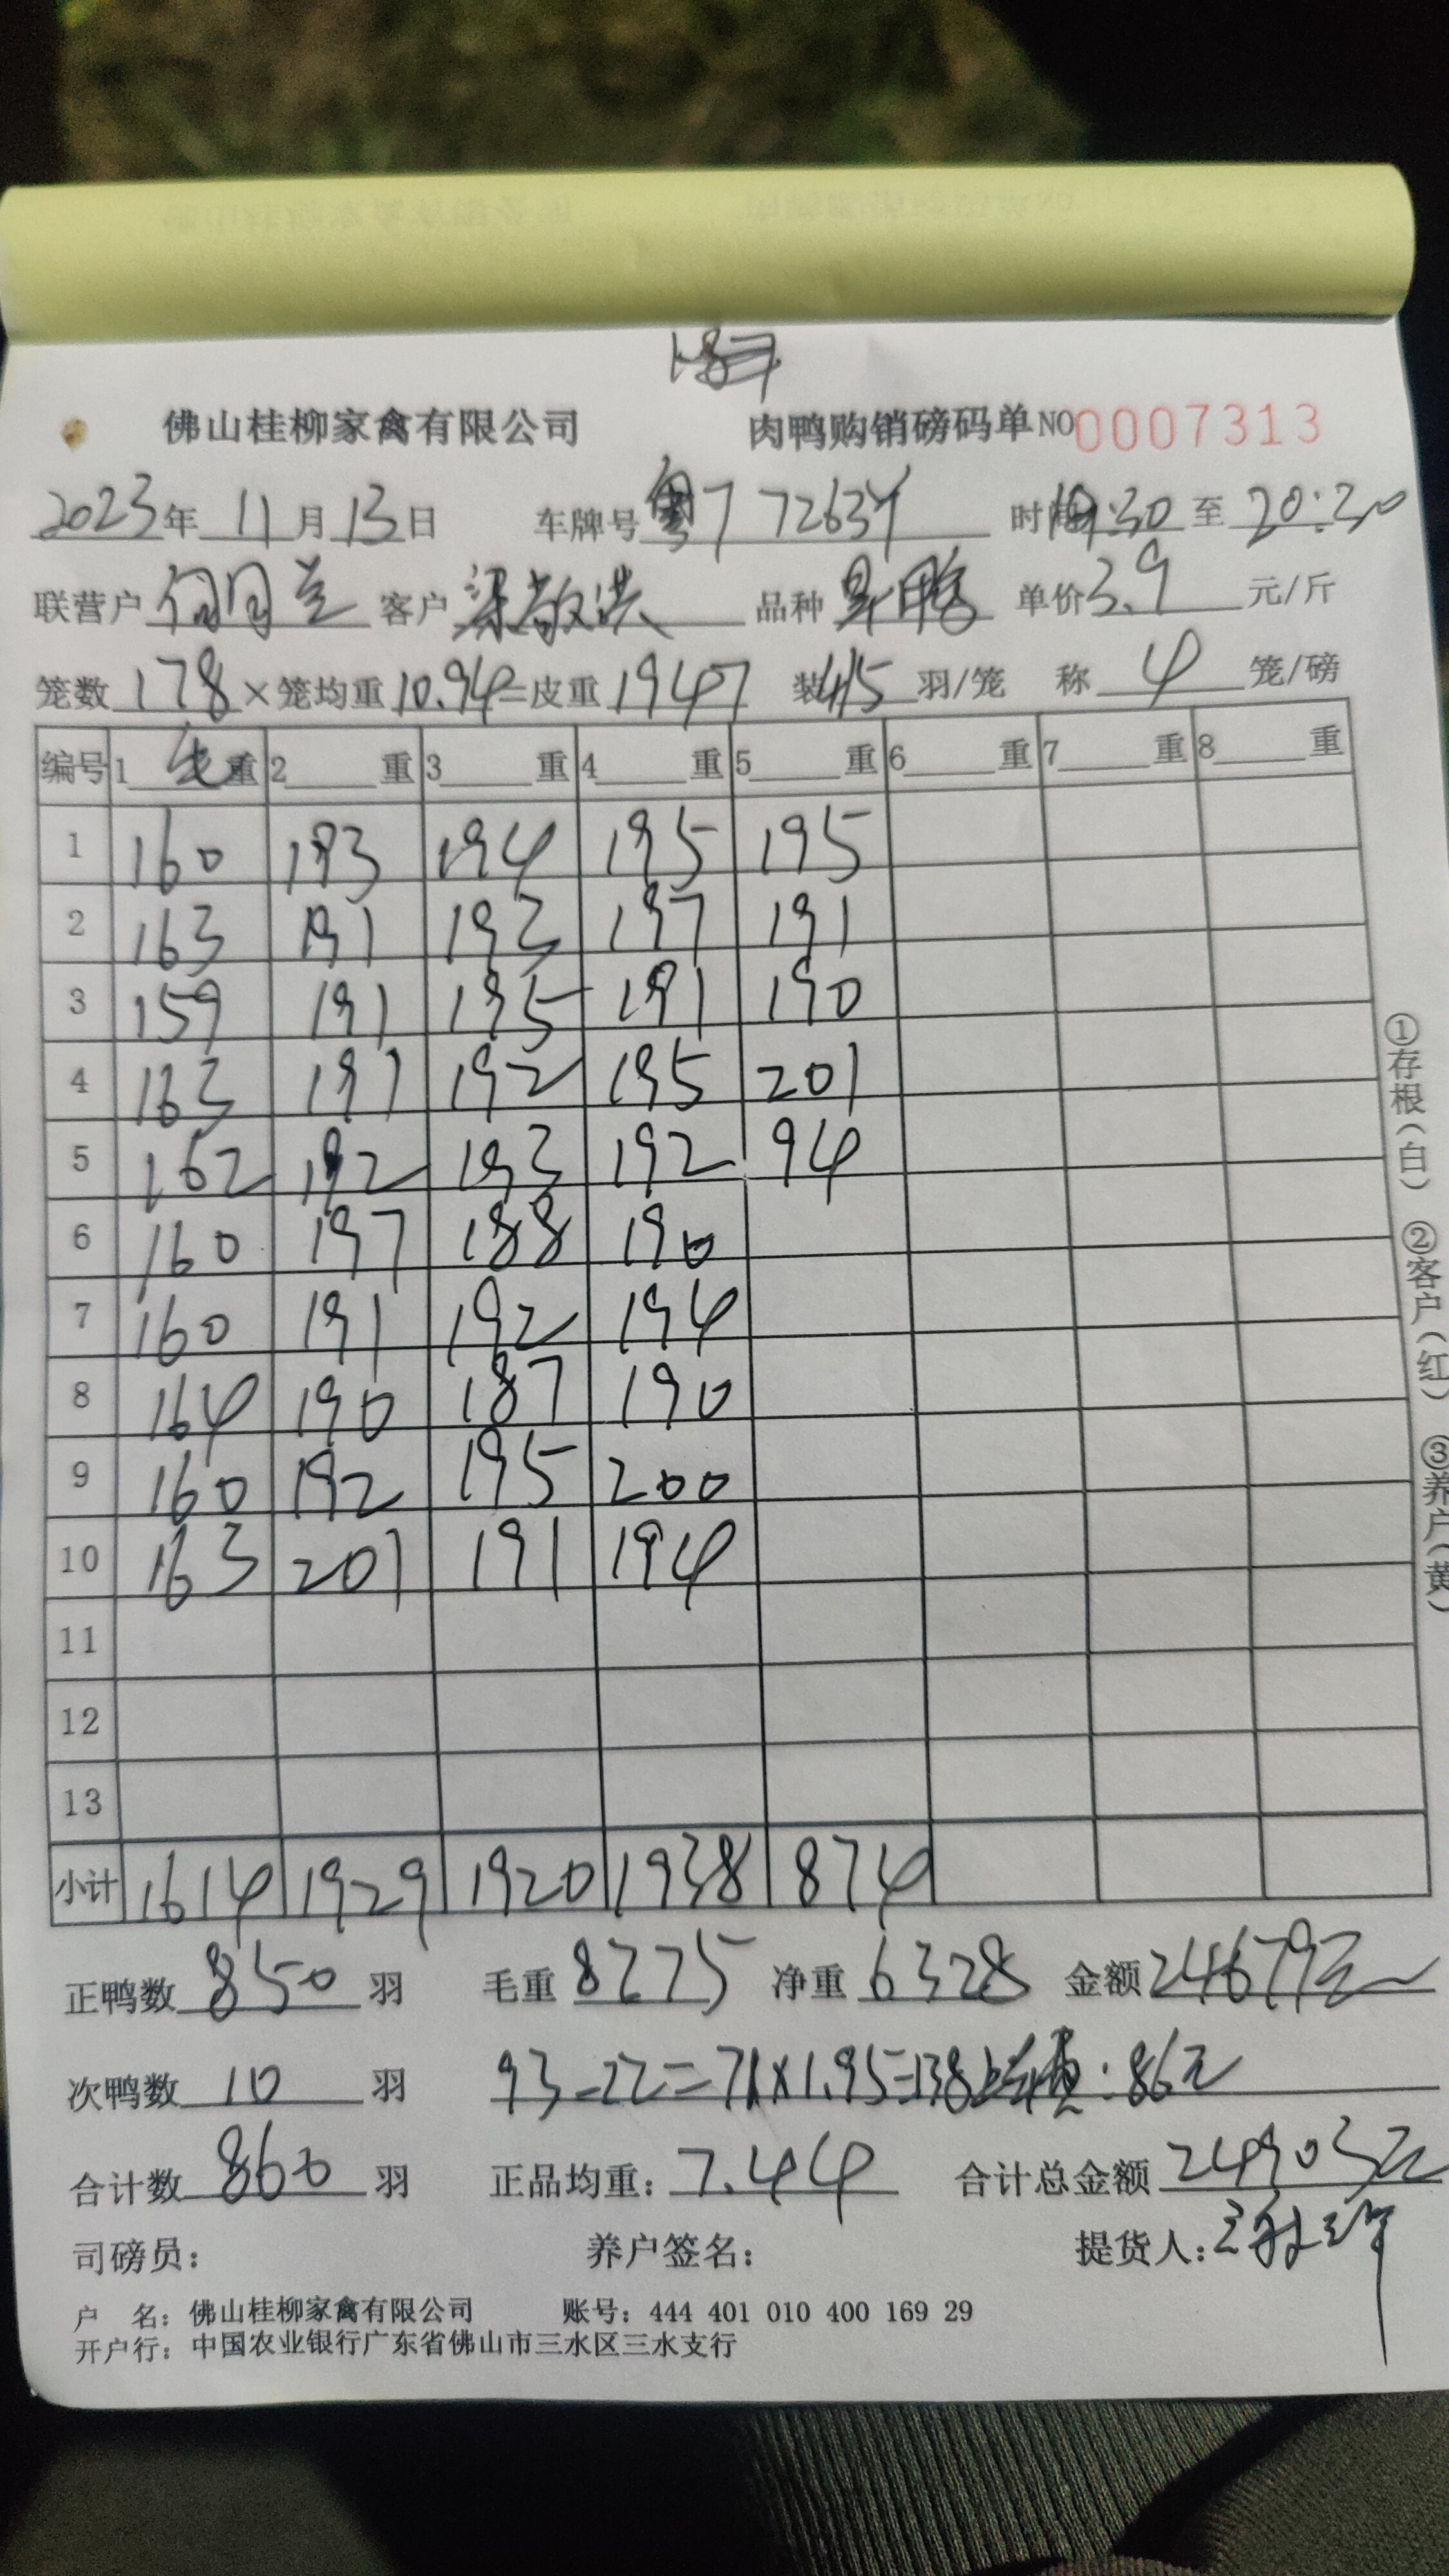 佛山桂柳家禽有限公司 肉鸭购销磅码单 NO 0007313
2023年 11月13日 车牌号 粤 72634 时间 :30 至 20:30
联营户 客户 梁敬洪 品种 单价3.9 元/斤
笼数 178 ×笼均重10.94=皮重 1947 装4/5 羽/笼 称 4 笼/磅
编号 1 毛重 2 重 3 重 4 重 5 重 6 重 7 重 8 重
1 160 193 194 195 195
2 163 191 193 197 191
3 159 191 195 191 190
4 163 191 192 195 201
5 162 192 193 192 94
6 160 197 188 190
7 160 191 192 194
8 164 190 187 190
9 160 192 195 200
10 163 201 191 194
11
12
13
小计 1614 1929 1920 1938 874
①存根(白) ②客户(红) ③养户(黄)
正鸭数 850 羽 毛重 8275 净重 6328 金额 24679元
次鸭数 10 羽 93-22=71×1.95=138 :86元
合计数 860 羽 正品均重: 7.44 合计总金额 24903元
司磅员: 养户签名: 提货人:
户 名: 佛山桂柳家禽有限公司 账号: 444 401 010 400 169 29
开户行: 中国农业银行广东省佛山市三水区三水支行